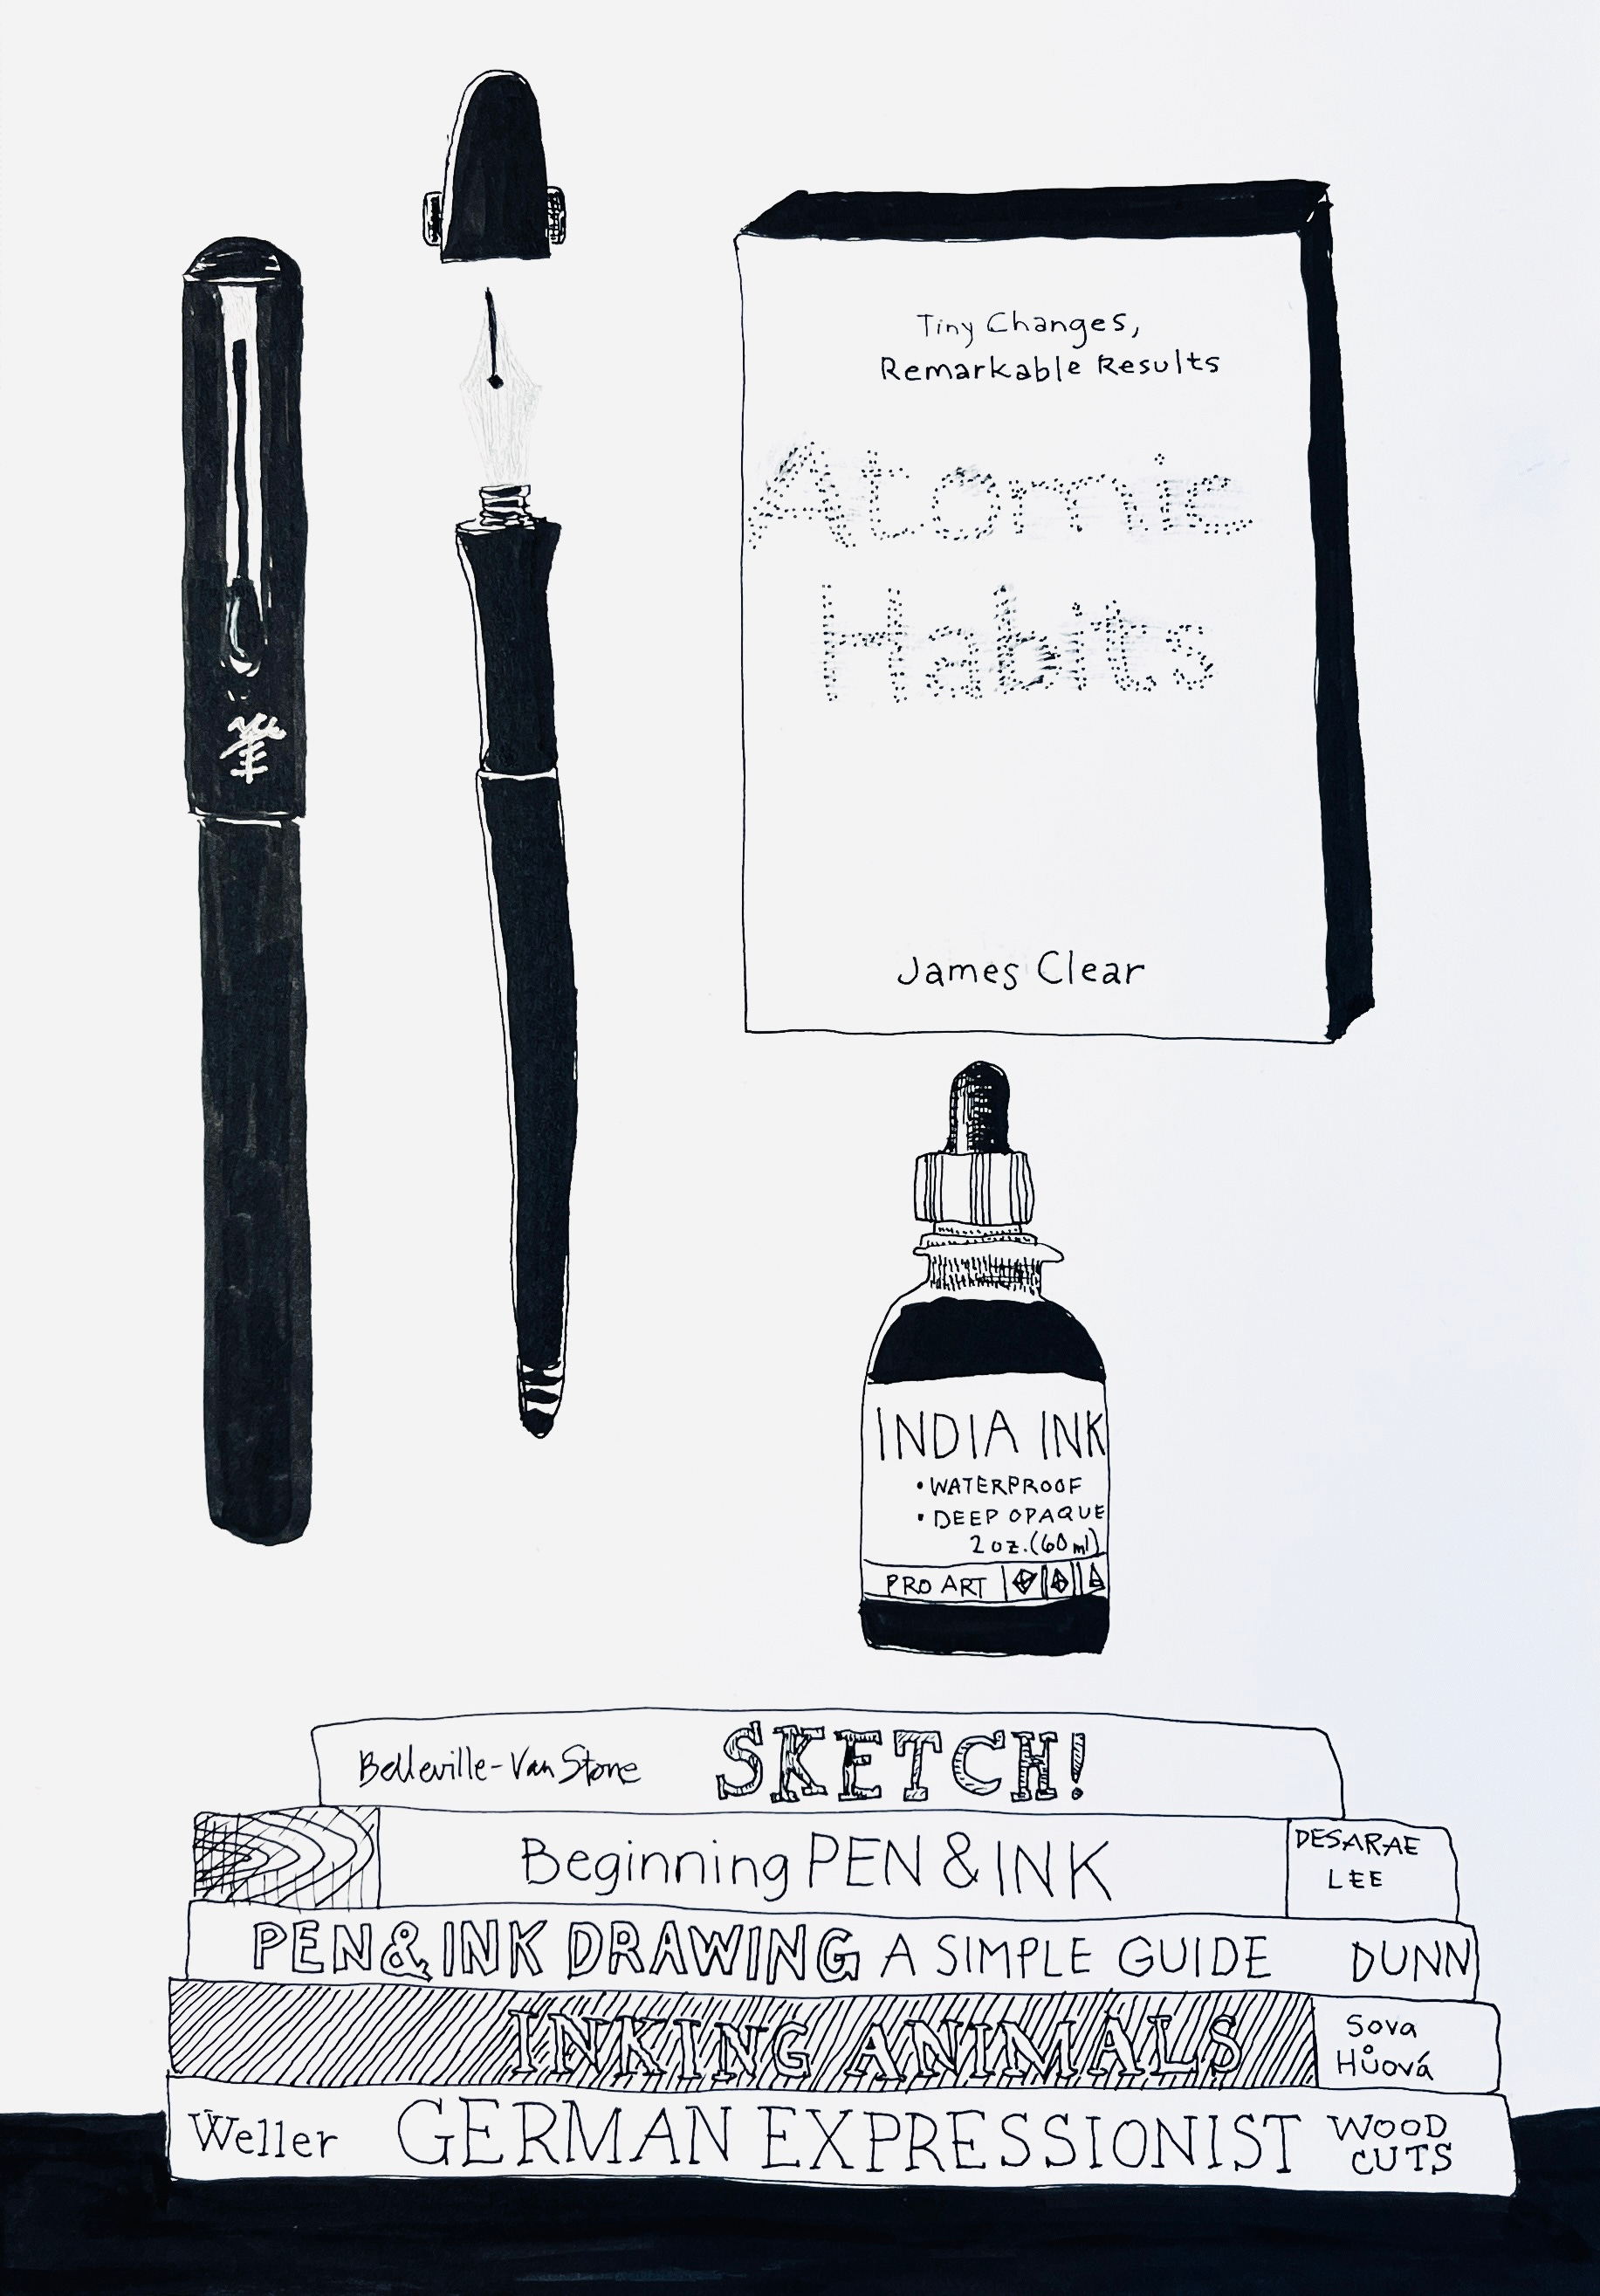 筆
Tiny Changes,
Remarkable Results
Atomic
Habits
James Clear
INDIA INK
• WATERPROOF
• DEEP OPAQUE
2 oz. (60 ml)
PRO ART
Belleville-Van Stone SKETCH!
Beginning PEN & INK DESARAE
LEE
PEN & INK DRAWING A SIMPLE GUIDE DUNN
INKING ANIMALS Sova
Hůová
Weller GERMAN EXPRESSIONIST WOOD
CUTS